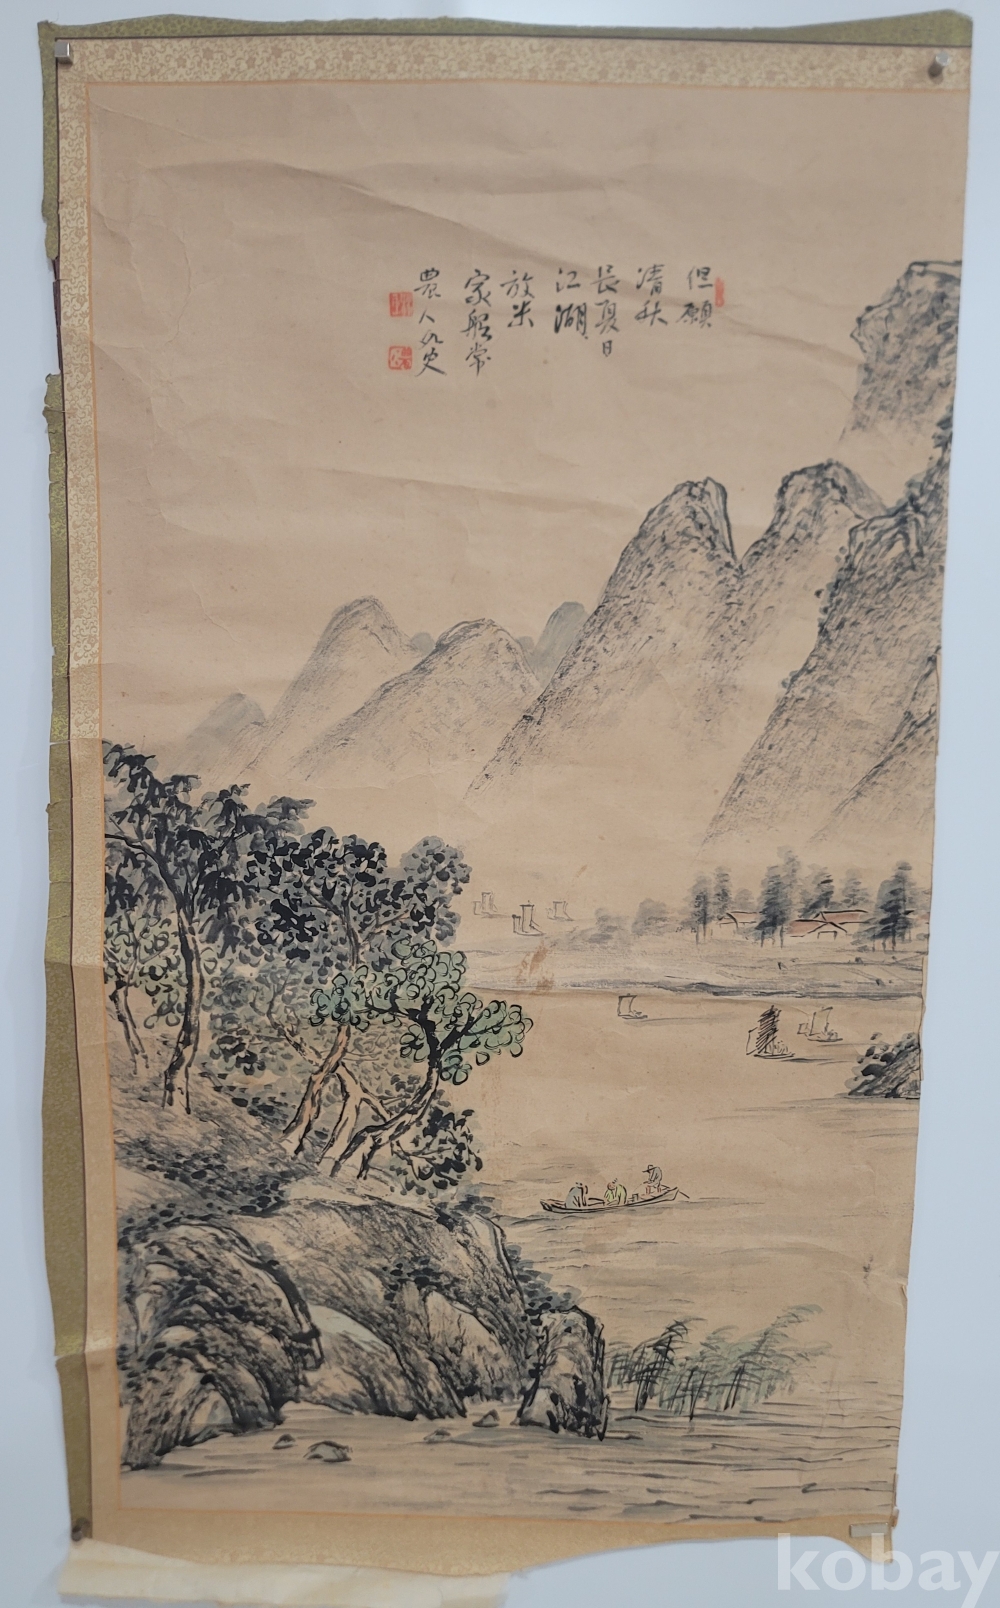 但願
清秋
長夏日
江湖
放米
家船常
農人
kobay